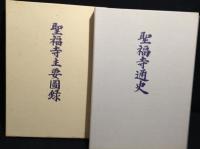 聖福寺通史
聖福寺主要圖錄